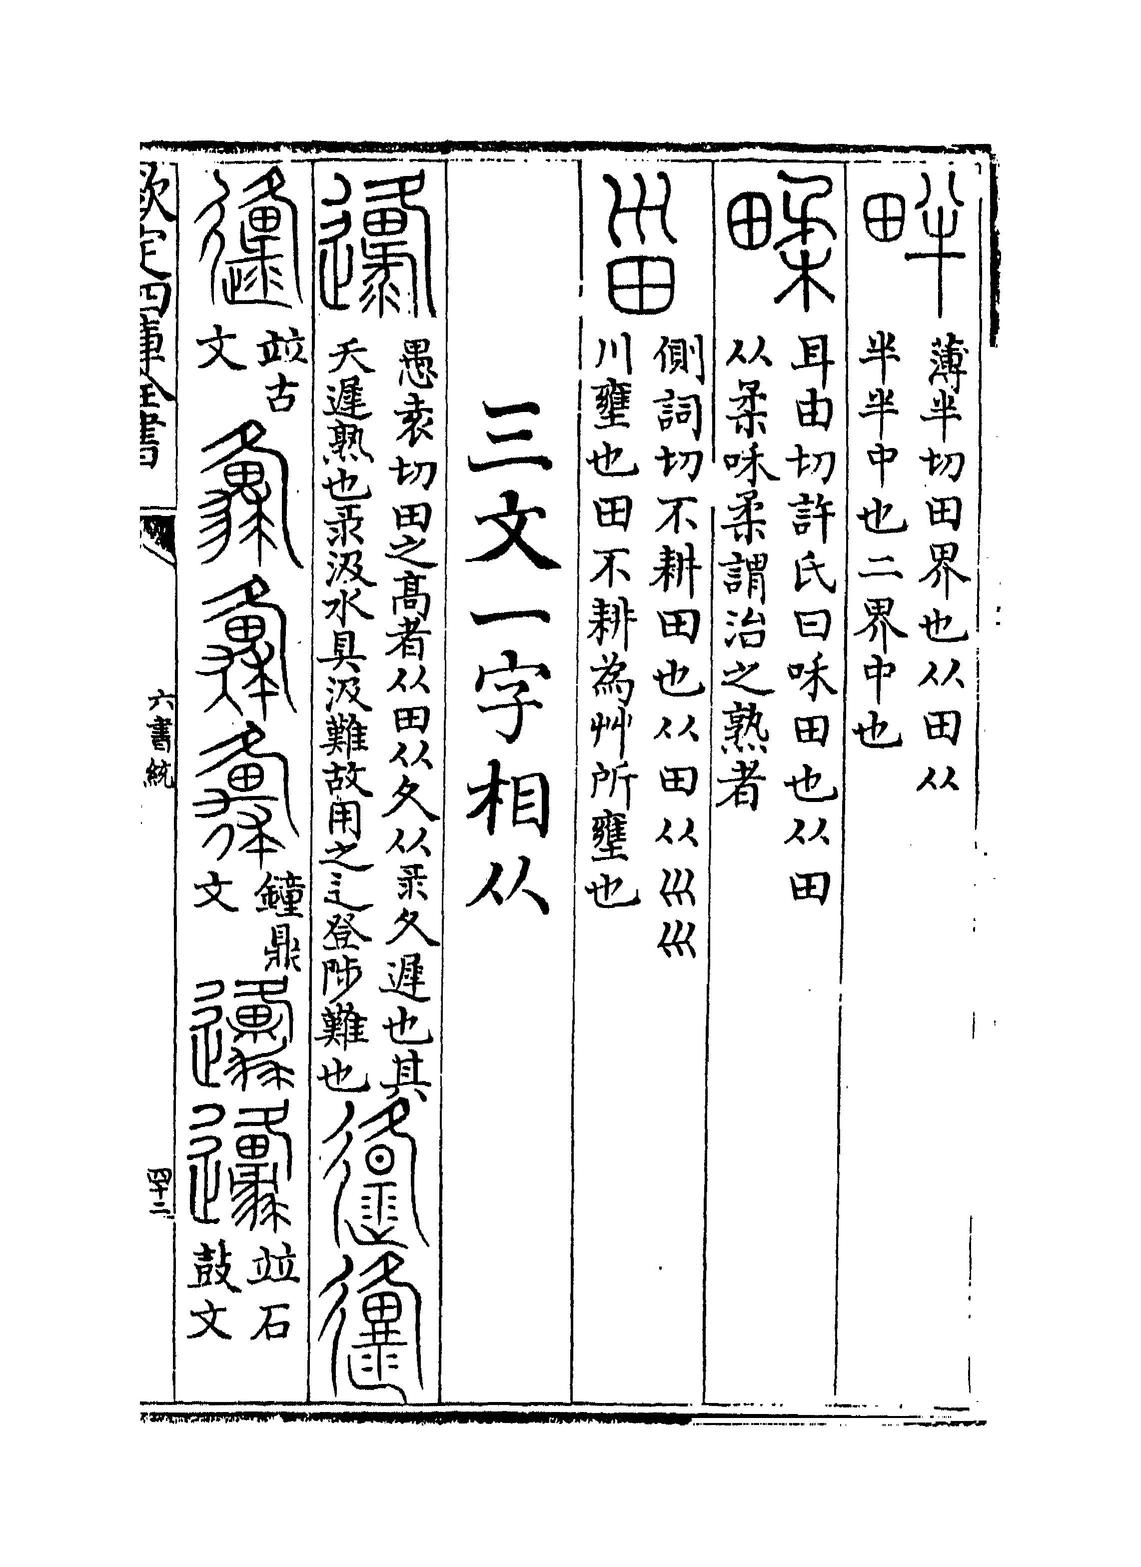 畔
薄半切田界也从田从
半半中也二界中也
耳由切許氏曰咊田也从田
从柔咊柔謂治之熟者
甾
側詞切不耕田也从田从巛巛
川壅也田不耕為艸所壅也
三文一字相从
邍
愚袁切田之髙者从田从夂从彔夂遲也其
天遲熟也彔汲水具汲難故用之辵登陟難也
竝古
文
鐘鼎
文
竝石
鼓文
欽定四庫全書
六書統
四十二